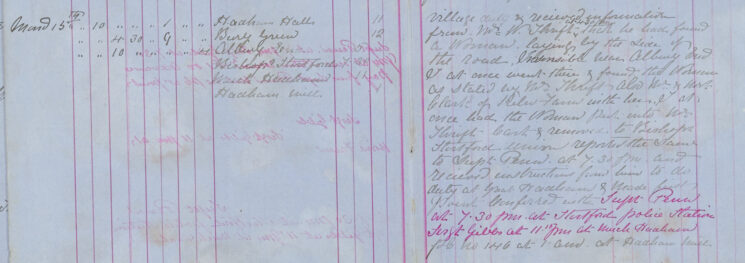 March 15th " 10 " " 1 " Hadham Halls 11
" " 4 30 " 9 " Bury Green 12
" " 10 " " " 4 Albury End
Bishops Stortford
Much Hadham
Hadham mill
village duty & received information
from Mr W. Thrift that he had found
a Woman laying by the side of
the road near Albury End
I at once went there & found the Woman
as stated by Mr Thrift also Mr & Mrs
Clark of Farm with her & at
once had the Woman Put into Mr
Thrift Cart & removed to Bishops
Stortford Union reported the same
to Supt Penn at 7.30 pm and
received instructions from him to do
duty at Great Hadham & Made
Point Conferred with Supt Penn
at 7.30 pm at Stortford police Station
Sergt Gibbs at 11 pm at Much Hadham
P.C. no 146 at 1 am at Hadham Mill